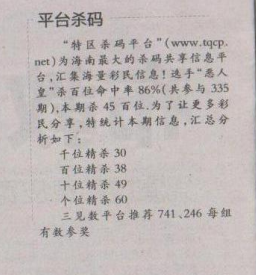 平台杀码
“特区杀码平台”(www.tqcp.
net)为海南最大的杀码共享信息平
台,汇集海量彩民信息!选手“恶人
皇”杀百位命中率86%(共参与335
期),本期杀45百位.为了让更多彩
民分享,特统计本期信息,汇总分
析如下:
千位精杀30
百位精杀38
十位精杀49
个位精杀60
三见数平台推荐741、246每组
有数参奖